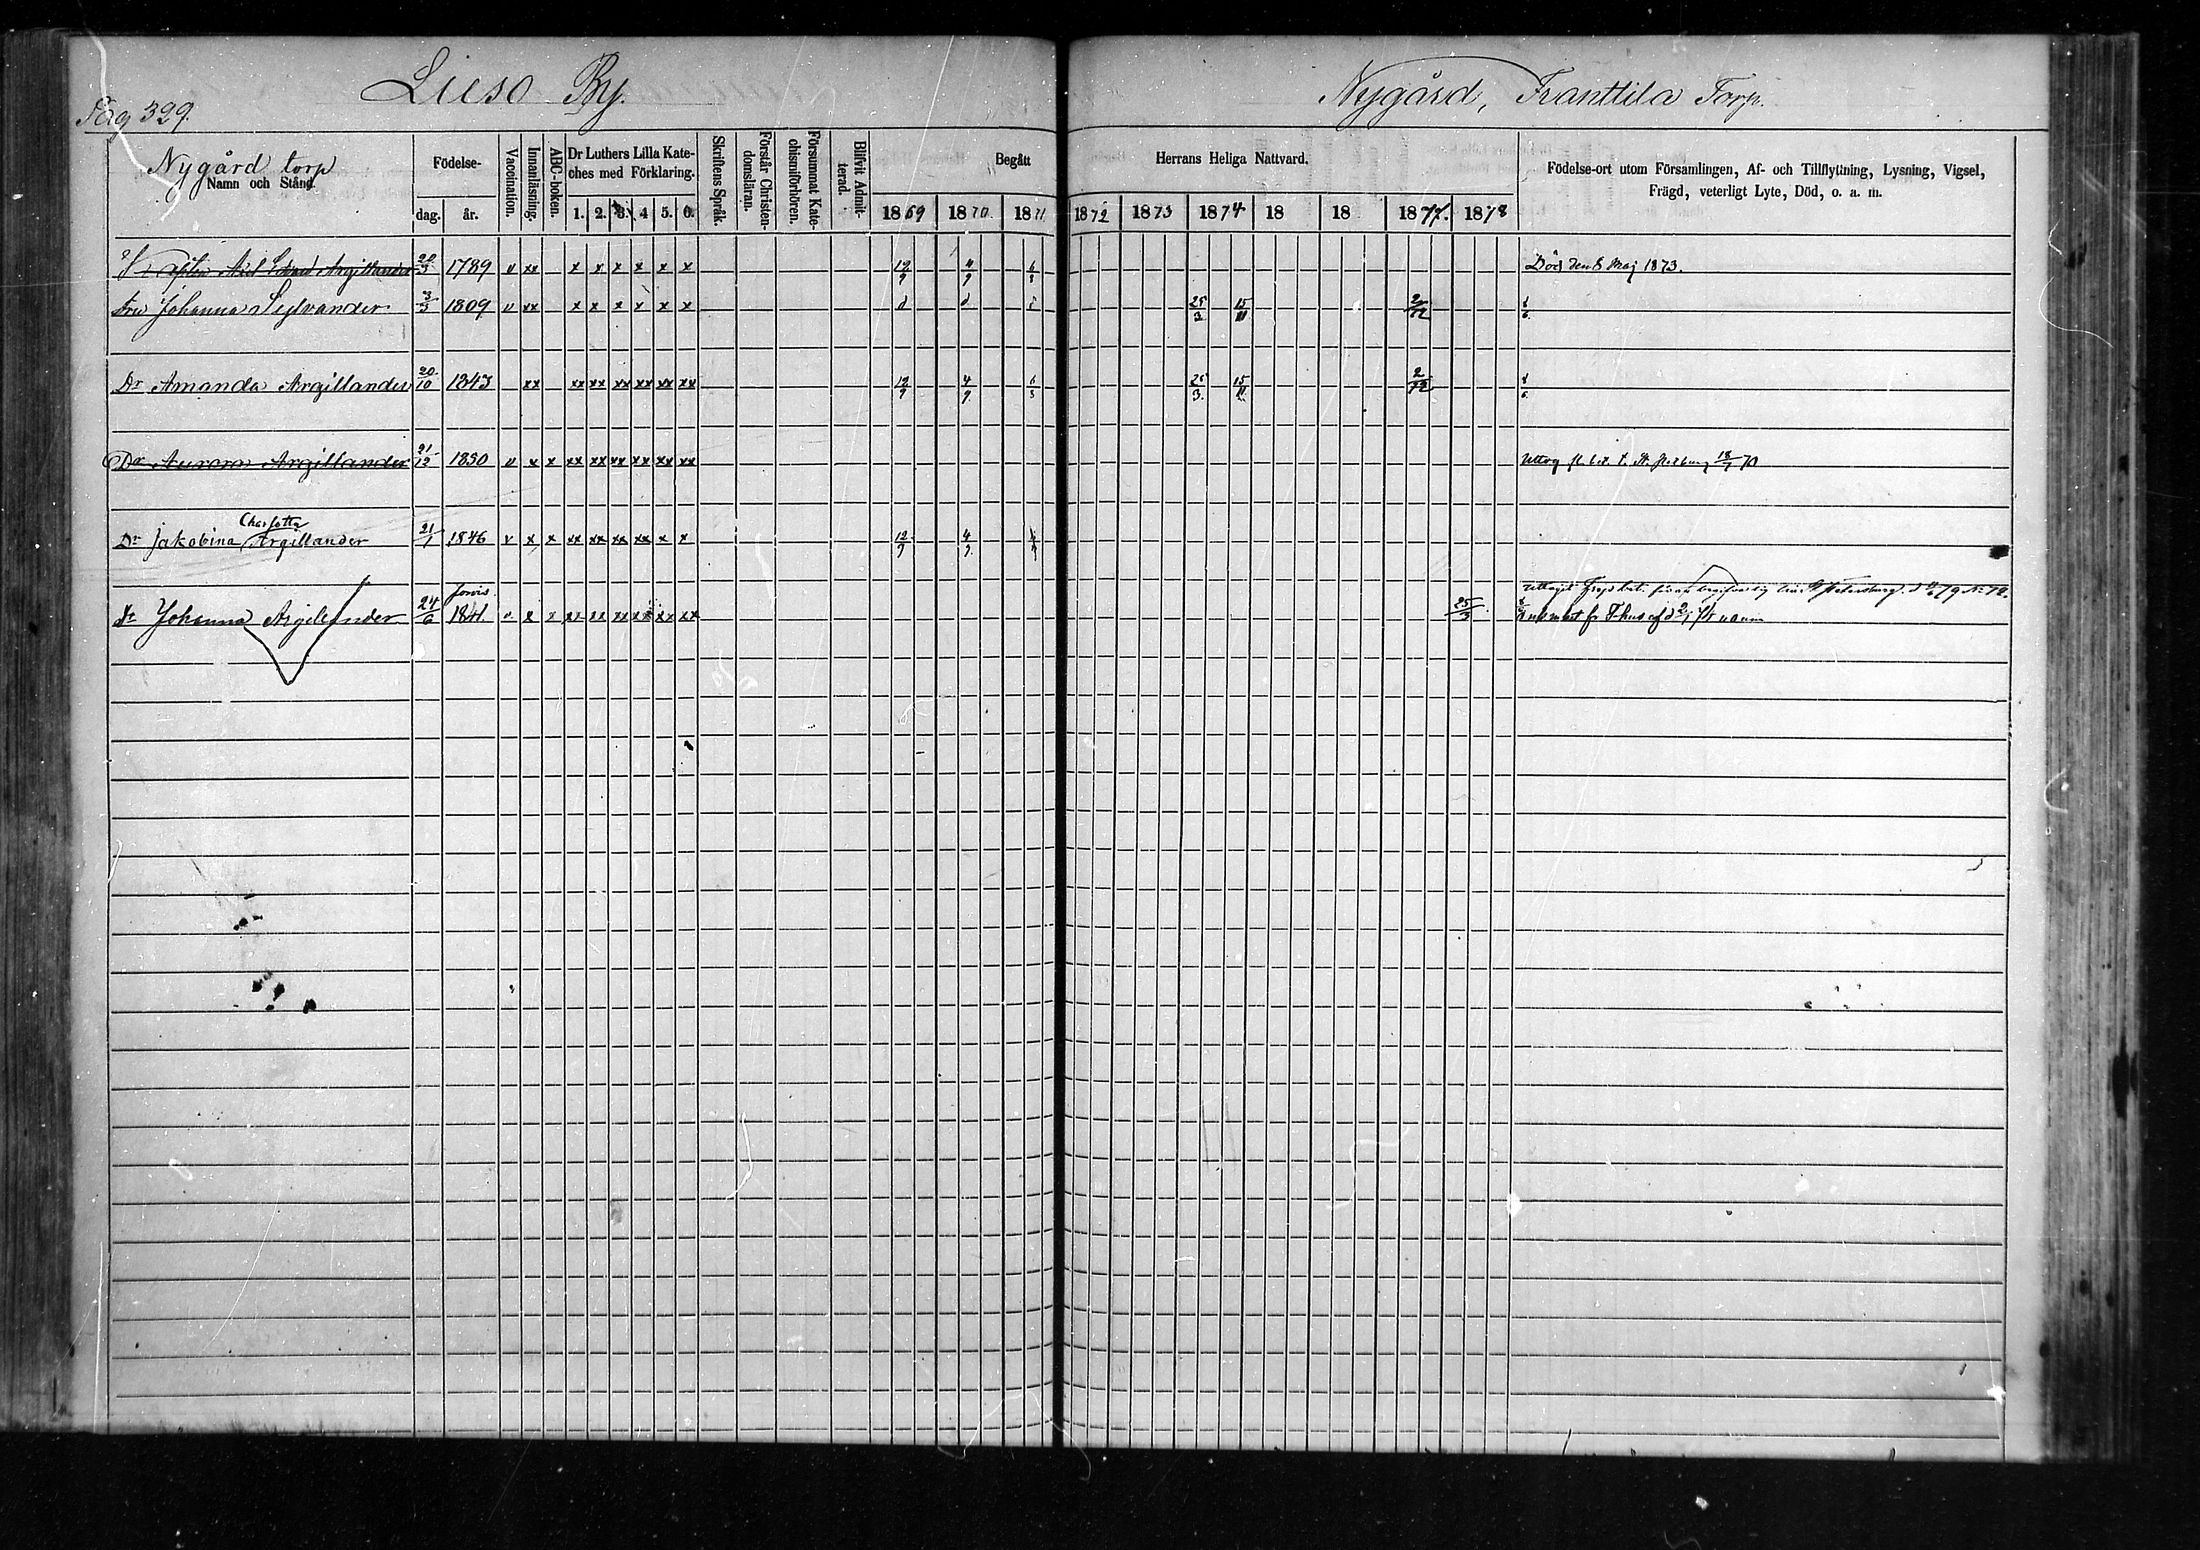 Pag 329.
Lieso By.
Nygård, Franttila Torp.
Nygård torp
Namn och Stånd.
Födelse-
dag. år.
Vaccination.
Innanläsning.
ABC-boken.
Dr Luthers Lilla Kate-
ches med Förklaring.
1. 2. 3. 4 5. 6.
Skriftens Språk.
Förstår Christen-
domsläran.
Försummat Kate-
chismiförhören.
Blifvit Admit-
terad.
Begått Herrans Heliga Nattvard.
1869 1870. 1871. 1872 1873 1874 18 18 1877. 1878
Födelse-ort utom Församlingen, Af- och Tillflyttning, Lysning, Vigsel,
Frägd, veterligt Lyte, Död, o. a. m.
Axel Edvard Argillander 20/3 1789 v xx x x x x x x 12/9 4/9 6/8 Död den 8 Maj 1873.
Fru Johanna Sylvander 3/3 1809 v xx x x x x x x d d d 25/3 15/11 2/12 8/6
Dr Amanda Argillander 20/10 1843 xx xx xx xx xx xx xx 12/9 4/9 6/8 25/3 15/11 2/12 8/6
Dr Aurora Argillander 21/12 1830 v x x xx xx xx xx xx xx Uttog fl. bet. t. St. Petersburg 18/7 70
Charlotta
Dr Jakobina Argillander 21/1 1846 v x x xx xx xx xx x x 12/9 4/9
Uttagit St Petersburg
Johanna Argillander 24/6 1841. v. x x xx xx xx xx xx xx 25/3